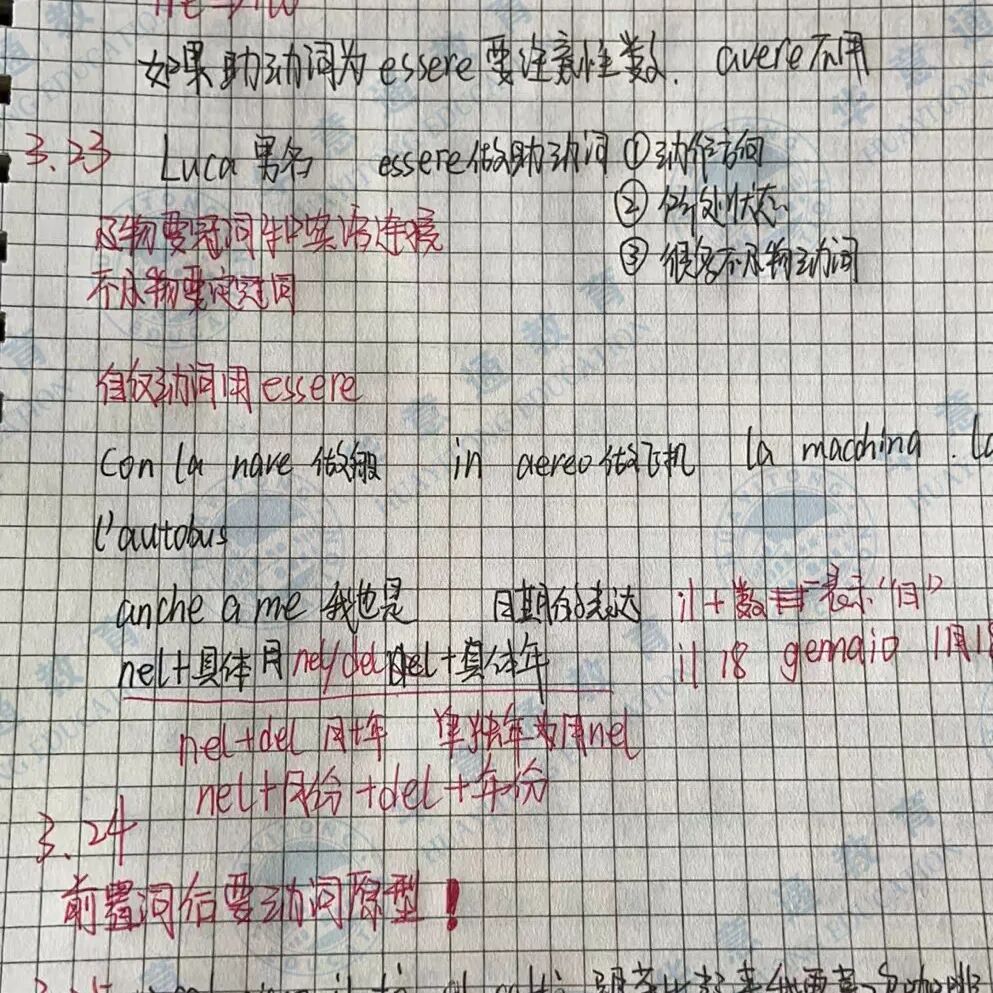 如果助动词为 essere 要注意性数. avere不用
3.23 Luca 男名 essere做助动词 ① 动作方向
② 所处状态
③ 很多不及物动词
及物要冠词
不及物要定冠词
自反动词用 essere
con la nave 做船 in aereo做飞机 la macchina . la
l'autobus
anche a me 我也是 日期的表达 il + 数 表示"日"
nel+具体月 nel/del del +具体年 il 18 gennaio 1月18
nel+del 月+年 单独年为用nel
nel+月份+del+年份
3.24
前置词后要动词原型！